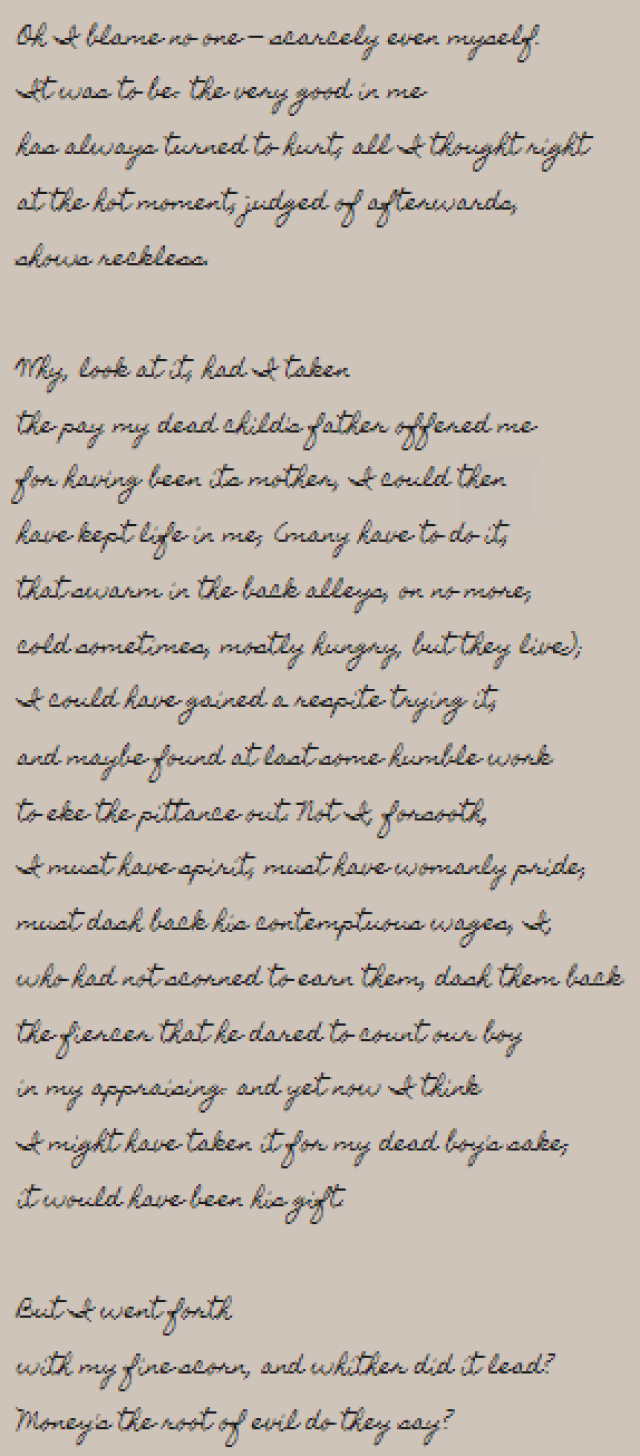 Oh I blame no one – scarcely even myself.
It was to be: the very good in me
has always turned to hurt; all I thought right
at the hot moment, judged of afterwards,
shows reckless.

Why, look at it, had I taken
the pay my dead child's father offered me
for having been its mother, I could then
have kept life in me; (many have to do it,
that swarm in the back alleys, on no more,
cold sometimes, mostly hungry, but they live);
I could have gained a respite trying it,
and maybe found at last some humble work
to eke the pittance out. Not I, forsooth,
I must have spirit, must have womanly pride,
must dash back his contemptuous wages, I,
who had not scorned to earn them, dash them back
the fiercer that he dared to count our boy
in my appraising: and yet now I think
I might have taken it for my dead boy's sake;
it would have been his gift.

But I went forth
with my fine scorn, and whither did it lead?
Money's the root of evil do they say?